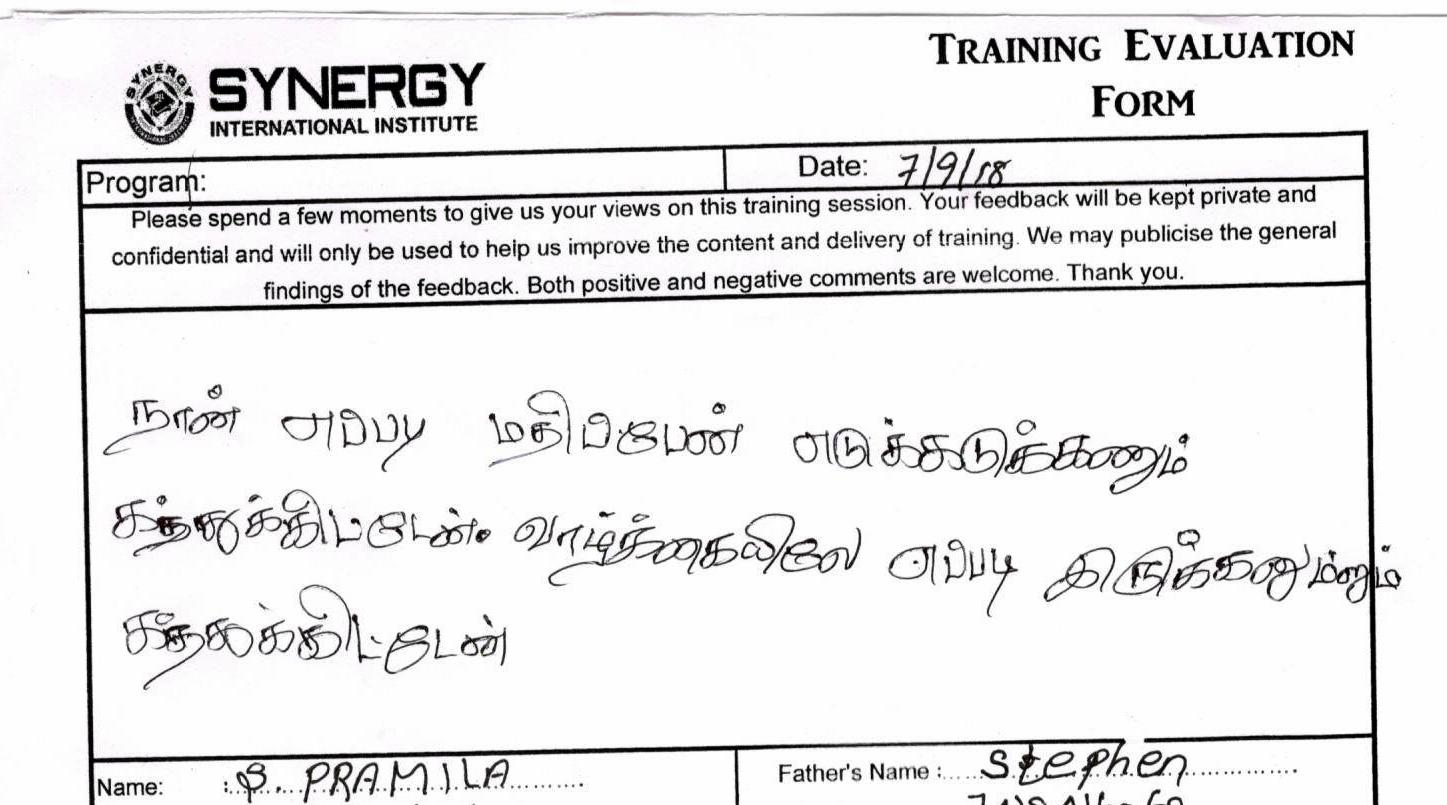 SYNERGY
INTERNATIONAL INSTITUTE
TRAINING EVALUATION
FORM
Program:
Date: 7/9/18
Please spend a few moments to give us your views on this training session. Your feedback will be kept private and
confidential and will only be used to help us improve the content and delivery of training. We may publicise the general
findings of the feedback. Both positive and negative comments are welcome. Thank you.
நான் எப்படி மதிப்பேண் எடுக்கடுக்கணும்
கத்துக்கிட்டேன். வாழ்க்கையிலே எப்படி இருக்கனும்னும்
கத்துக்கிட்டேன்
Name: : S. PRAMILA
Father's Name : Stephen